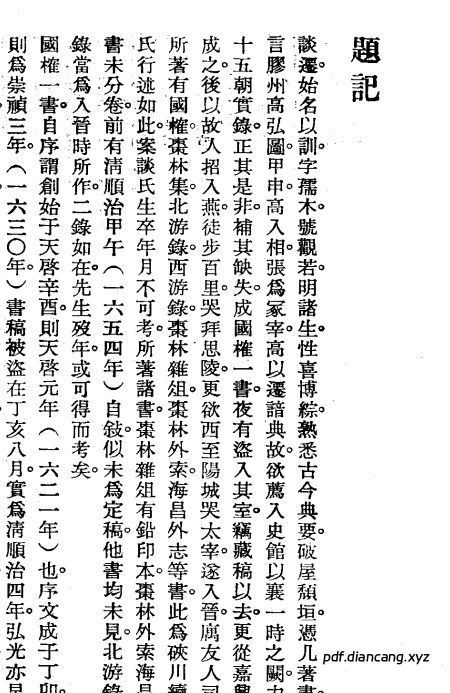 題記
談遷始名以訓。字孺木。號觀若。明諸生。性喜博綜。熟悉古今典要。破屋頹垣。憑几著書
言膠州高弘圖。甲申。高入相。張爲冢宰。高以遷諳典故。欲薦入史館。以襄一時之闕。
十五朝實錄。正其是非。補其缺失。成國榷一書。夜有盜入其室。竊藏稿以去。更從嘉興
成之後。以故人招入燕。徒步百里。哭拜思陵。更欲西至陽城哭太宰。遂入晉。寓友人司
所著有國榷。棗林集。北游錄。西游錄。棗林雜俎。棗林外索。海昌外志等書。此爲硤川續
氏行述如此。案談氏生卒年月不可考。所著諸書。棗林雜俎有鉛印本。棗林外索海昌
書未分卷。前有清順治甲午（一六五四年）自敍。似未爲定稿。他書均未見。北游錄
錄當爲入晉時所作。二錄如在。先生歿年或可得而考矣。
國榷一書。自序謂創始于天啓辛酉。則天啓元年（一六二一年）也。序文成于丁卯。
則爲崇禎三年。（一六三〇年）書稿被盜在丁亥八月。實爲清順治四年。弘光亦早
pdf.diancang.xyz